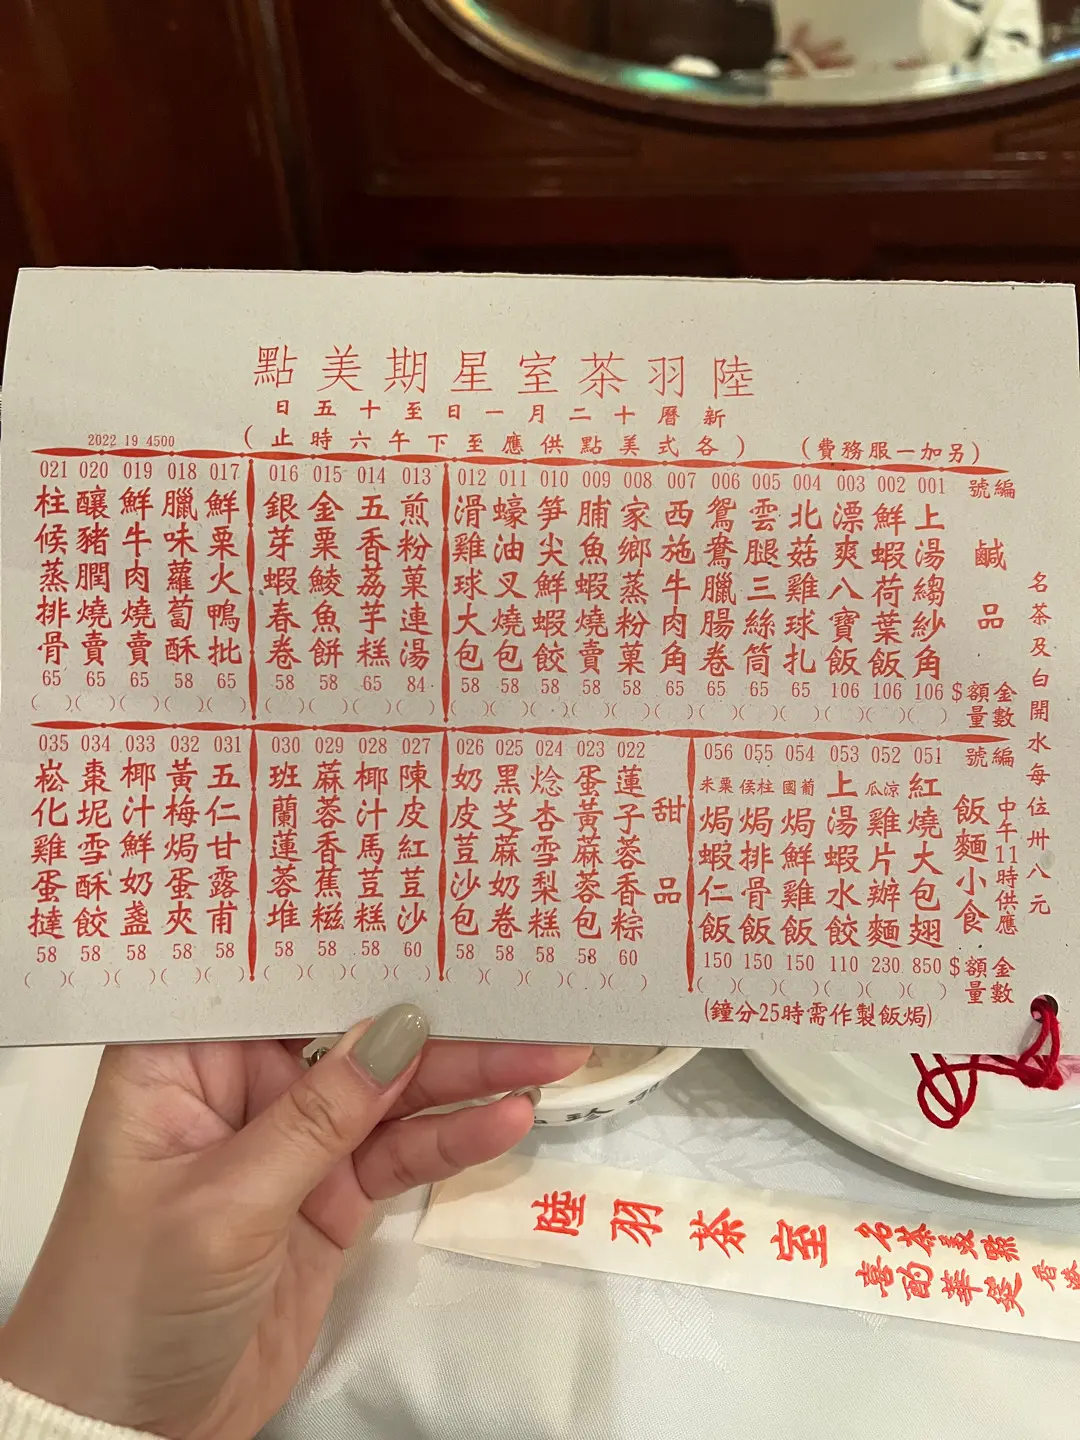 陸羽茶室星期美點
新曆十二月一日至十五日
(各式美點供應至下午六時止)
(另加一服務費)
2022 19 4500
編號
鹹品
金額$
數量
001 上湯縐紗角 106 ( )
002 鮮蝦荷葉飯 106 ( )
003 漂爽八寶飯 106 ( )
004 北菇雞球扎 65 ( )
005 雲腿三絲筒 65 ( )
006 鴛鴦臘腸卷 65 ( )
007 西施牛肉角 65 ( )
008 家鄉蒸粉菓 58 ( )
009 脯魚蝦燒賣 58 ( )
010 笋尖鮮蝦餃 58 ( )
011 蠔油叉燒包 58 ( )
012 滑雞球大包 58 ( )
013 煎粉菓連湯 84 ( )
014 五香荔芋糕 65 ( )
015 金粟鯪魚餅 58 ( )
016 銀芽蝦春卷 58 ( )
017 鮮栗火鴨批 65 ( )
018 臘味蘿蔔酥 58 ( )
019 鮮牛肉燒賣 65 ( )
020 釀豬膶燒賣 65 ( )
021 柱候蒸排骨 65 ( )
名茶及白開水每位卅八元
編號
飯麵小食
中午11時供應
金額$
數量
051 紅燒大包翅 850 ( )
052 涼瓜雞片辦麵 230 ( )
053 上湯蝦水餃 110 ( )
054 葡國焗鮮雞飯 150 ( )
055 柱侯焗排骨飯 150 ( )
056 粟米焗蝦仁飯 150 ( )
(焗飯製作需時25分鐘)
甜品
022 蓮子蓉香粽 60 ( )
023 蛋黃蔴蓉包 58 ( )
024 焾杏雪梨糕 58 ( )
025 黑芝蔴奶卷 58 ( )
026 奶皮荳沙包 58 ( )
027 陳皮紅荳沙 60 ( )
028 椰汁馬荳糕 58 ( )
029 蔴蓉香蕉糍 58 ( )
030 班蘭蓮蓉堆 58 ( )
031 五仁甘露甫 58 ( )
032 黃梅焗蛋夾 58 ( )
033 椰汁鮮奶盞 58 ( )
034 棗坭雪酥餃 58 ( )
035 崧化雞蛋撻 58 ( )
珍
陸羽茶室
名茶美點
喜酌華筵
香